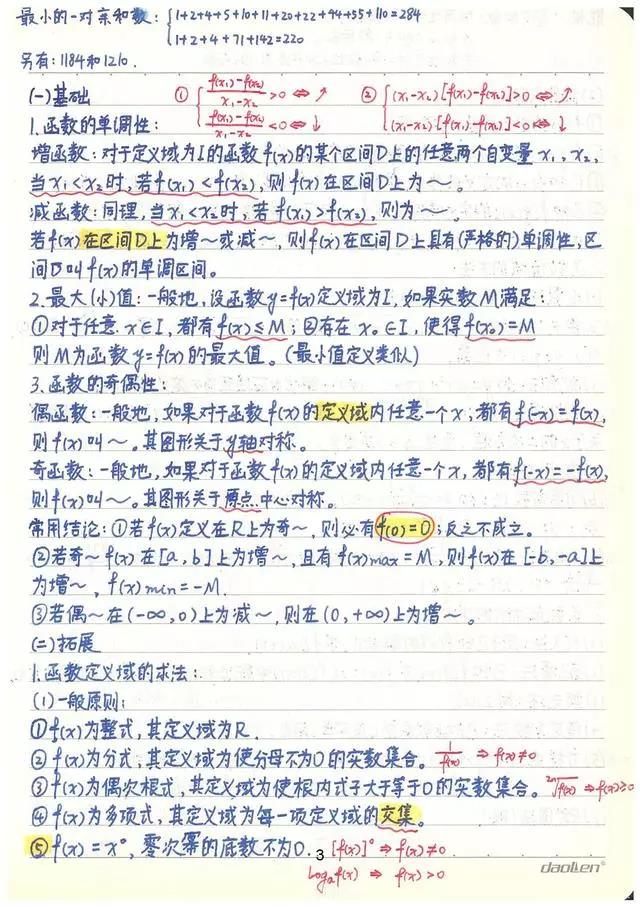 最小的一对亲和数: { 1+2+4+5+10+11+20+22+44+55+110=284
1+2+4+71+142=220
另有: 1184和1210.
(一)基础 ① { f(x₁)-f(x₂)/x₁-x₂ >0 ⇔ ↗ ② { (x₁-x₂)[f(x₁)-f(x₂)]>0 ⇔ ↗
1.函数的单调性: f(x₁)-f(x₂)/x₁-x₂ <0 ⇔ ↓ (x₁-x₂)[f(x₁)-f(x₂)]<0 ⇔ ↓
增函数:对于定义域为I的函数f(x)的某个区间D上的任意两个自变量x₁,x₂,
当x₁<x₂时,若f(x₁)<f(x₂),则f(x)在区间D上为~。
减函数:同理,当x₁<x₂时,若f(x₁)>f(x₂),则为~。
若f(x)在区间D上为增~或减~,则f(x)在区间D上具有(严格的)单调性,区
间D叫f(x)的单调区间。
2.最大(小)值:一般地,设函数y=f(x)定义域为I,如果实数M满足:
①对于任意x∈I,都有f(x)≤M;②存在x₀∈I,使得f(x₀)=M
则M为函数y=f(x)的最大值。(最小值定义类似)
3.函数的奇偶性:
偶函数:一般地,如果对于函数f(x)的定义域内任意一个x,都有f(-x)=f(x),
则f(x)叫~。其图形关于y轴对称。
奇函数:一般地,如果对于函数f(x)的定义域内任意一个x,都有f(-x)=-f(x),
则f(x)叫~。其图形关于原点中心对称。
常用结论:①若f(x)定义在R上为奇~,则必有f(0)=0;反之不成立。
②若奇~f(x)在[a,b]上为增~,且有f(x)max=M,则f(x)在[-b,-a]上
为增~,f(x)min=-M.
③若偶~在(-∞,0)上为减~,则在(0,+∞)上为增~。
(二)拓展
1.函数定义域的求法:
(1)一般原则:
①f(x)为整式,其定义域为R.
②f(x)为分式,其定义域为使分母不为0的实数集合。 1/f(x) ⇒ f(x)≠0
③f(x)为偶次根式,其定义域为使根内式子大于等于0的实数集合。 ²ⁿ√f(x) ⇒ f(x)≥0
④f(x)为多项式,其定义域为每一项定义域的交集。
⑤f(x)=x⁰,零次幂的底数不为0. 3 [f(x)]⁰ ⇒ f(x)≠0
logₐf(x) ⇒ f(x)>0
daolen